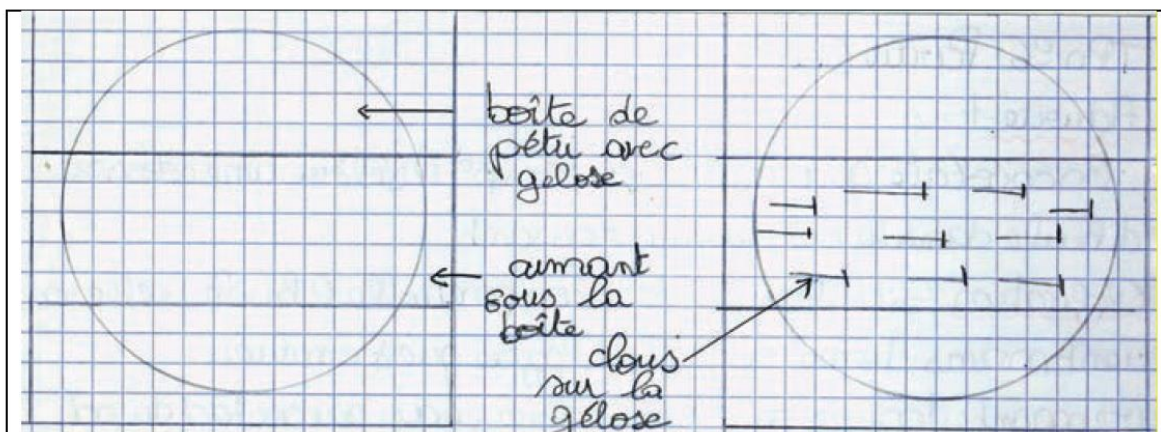 boîte de
pétri avec
gélose
aimant
sous la
boîte
clous
sur la
gélose